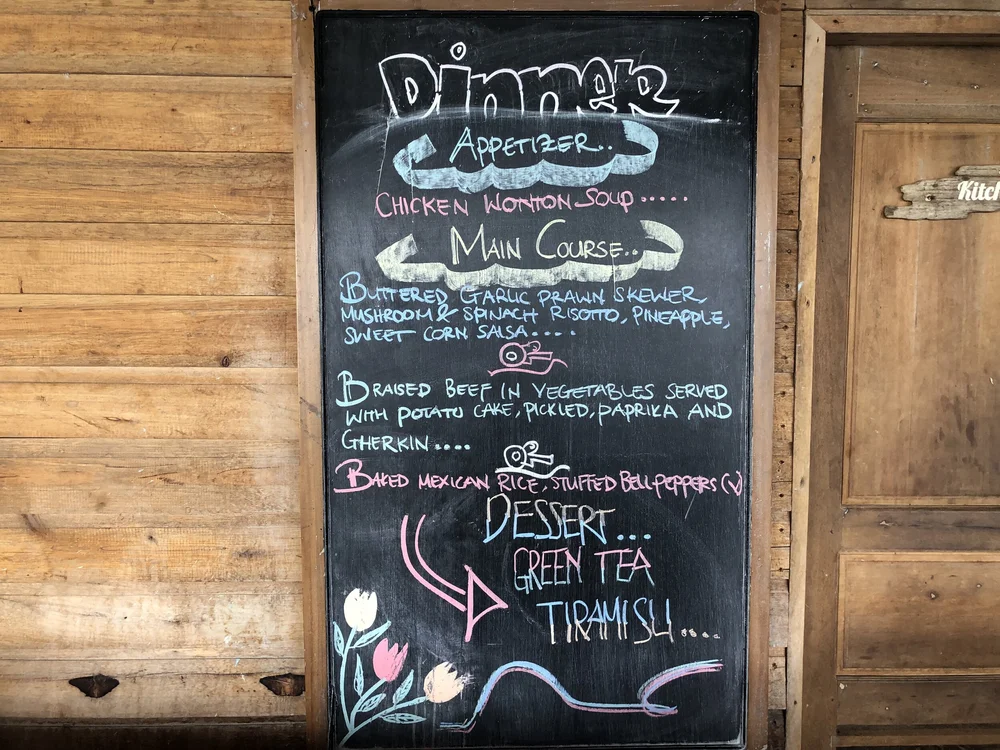 Dinner
APPETIZER..
CHICKEN WONTON SOUP.....
MAIN COURSE..
BUTTERED GARLIC PRAWN SKEWER,
MUSHROOM & SPINACH RISOTTO, PINEAPPLE,
SWEET CORN SALSA....
OR
BRAISED BEEF IN VEGETABLES SERVED
WITH POTATO CAKE, PICKLED, PAPRIKA AND
GHERKIN....
OR
BAKED MEXICAN RICE, STUFFED BELL-PEPPERS (V)
DESSERT...
GREEN TEA
TIRAMISU....
Kitch